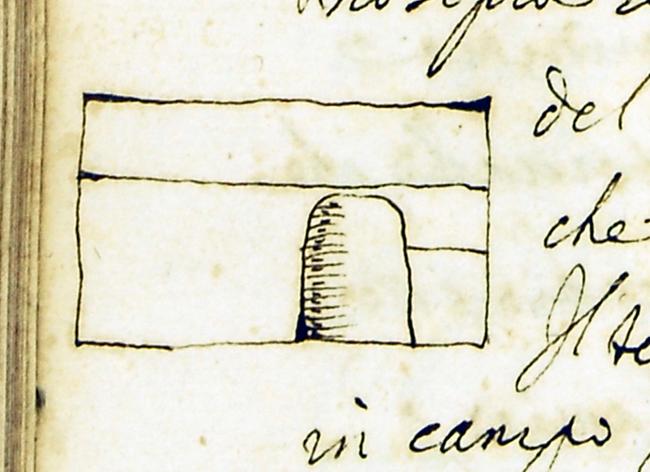 del
che
Il te
in campo